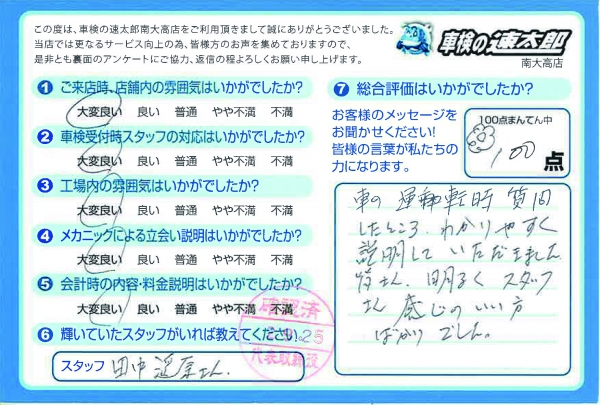 この度は、車検の速太郎南大高店をご利用頂きまして誠にありがとうございました。
当店では更なるサービス向上の為、皆様方のお声を集めておりますので、
是非とも裏面のアンケートにご協力、返信の程よろしくお願い申し上げます。
車検の速太郎
南大高店
1 ご来店時、店舗内の雰囲気はいかがでしたか?
大変良い 良い 普通 やや不満 不満
2 車検受付時スタッフの対応はいかがでしたか?
大変良い 良い 普通 やや不満 不満
3 工場内の雰囲気はいかがでしたか?
大変良い 良い 普通 やや不満 不満
4 メカニックによる立会い説明はいかがでしたか?
大変良い 良い 普通 やや不満 不満
5 会計時の内容・料金説明はいかがでしたか?
大変良い 良い 普通 やや不満 不満
6 輝いていたスタッフがいれば教えてください。
スタッフ 田中 さん.
確認済
25
代表取締役
7 総合評価はいかがでしたか?
お客様のメッセージを
お聞かせください!
皆様の言葉が私たちの
力になります。
100点まんてん中
100 点
車の 運転時 質問
したところ、わかりやすく
説明して いただきました
皆さん、明るく スタッフ
さん 感じのいい方
ばかり でした。